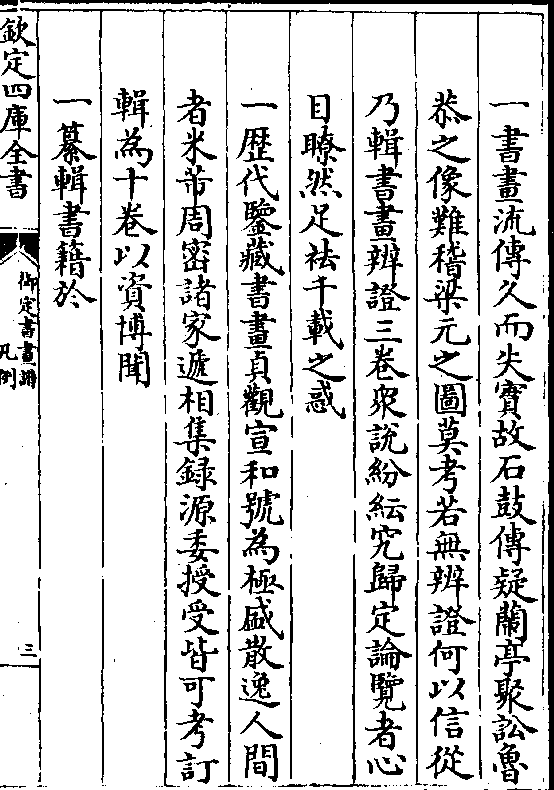 一書畫流傳久而失實故石鼓傳疑蘭亭聚訟魯
恭之像難稽梁元之圖莫考若無辨證何以信從
乃輯書畫辨證三卷衆說紛紜究歸定論覽者心
目瞭然足祛千載之惑
一歴代鑒藏書畫貞觀宣和號為極盛散逸人間
者米芾周密諸家遞相集録源委授受皆可考訂
輯為十卷以資博聞
一纂輯書籍於
欽定四庫全書
御定書畫譜
凡例
三